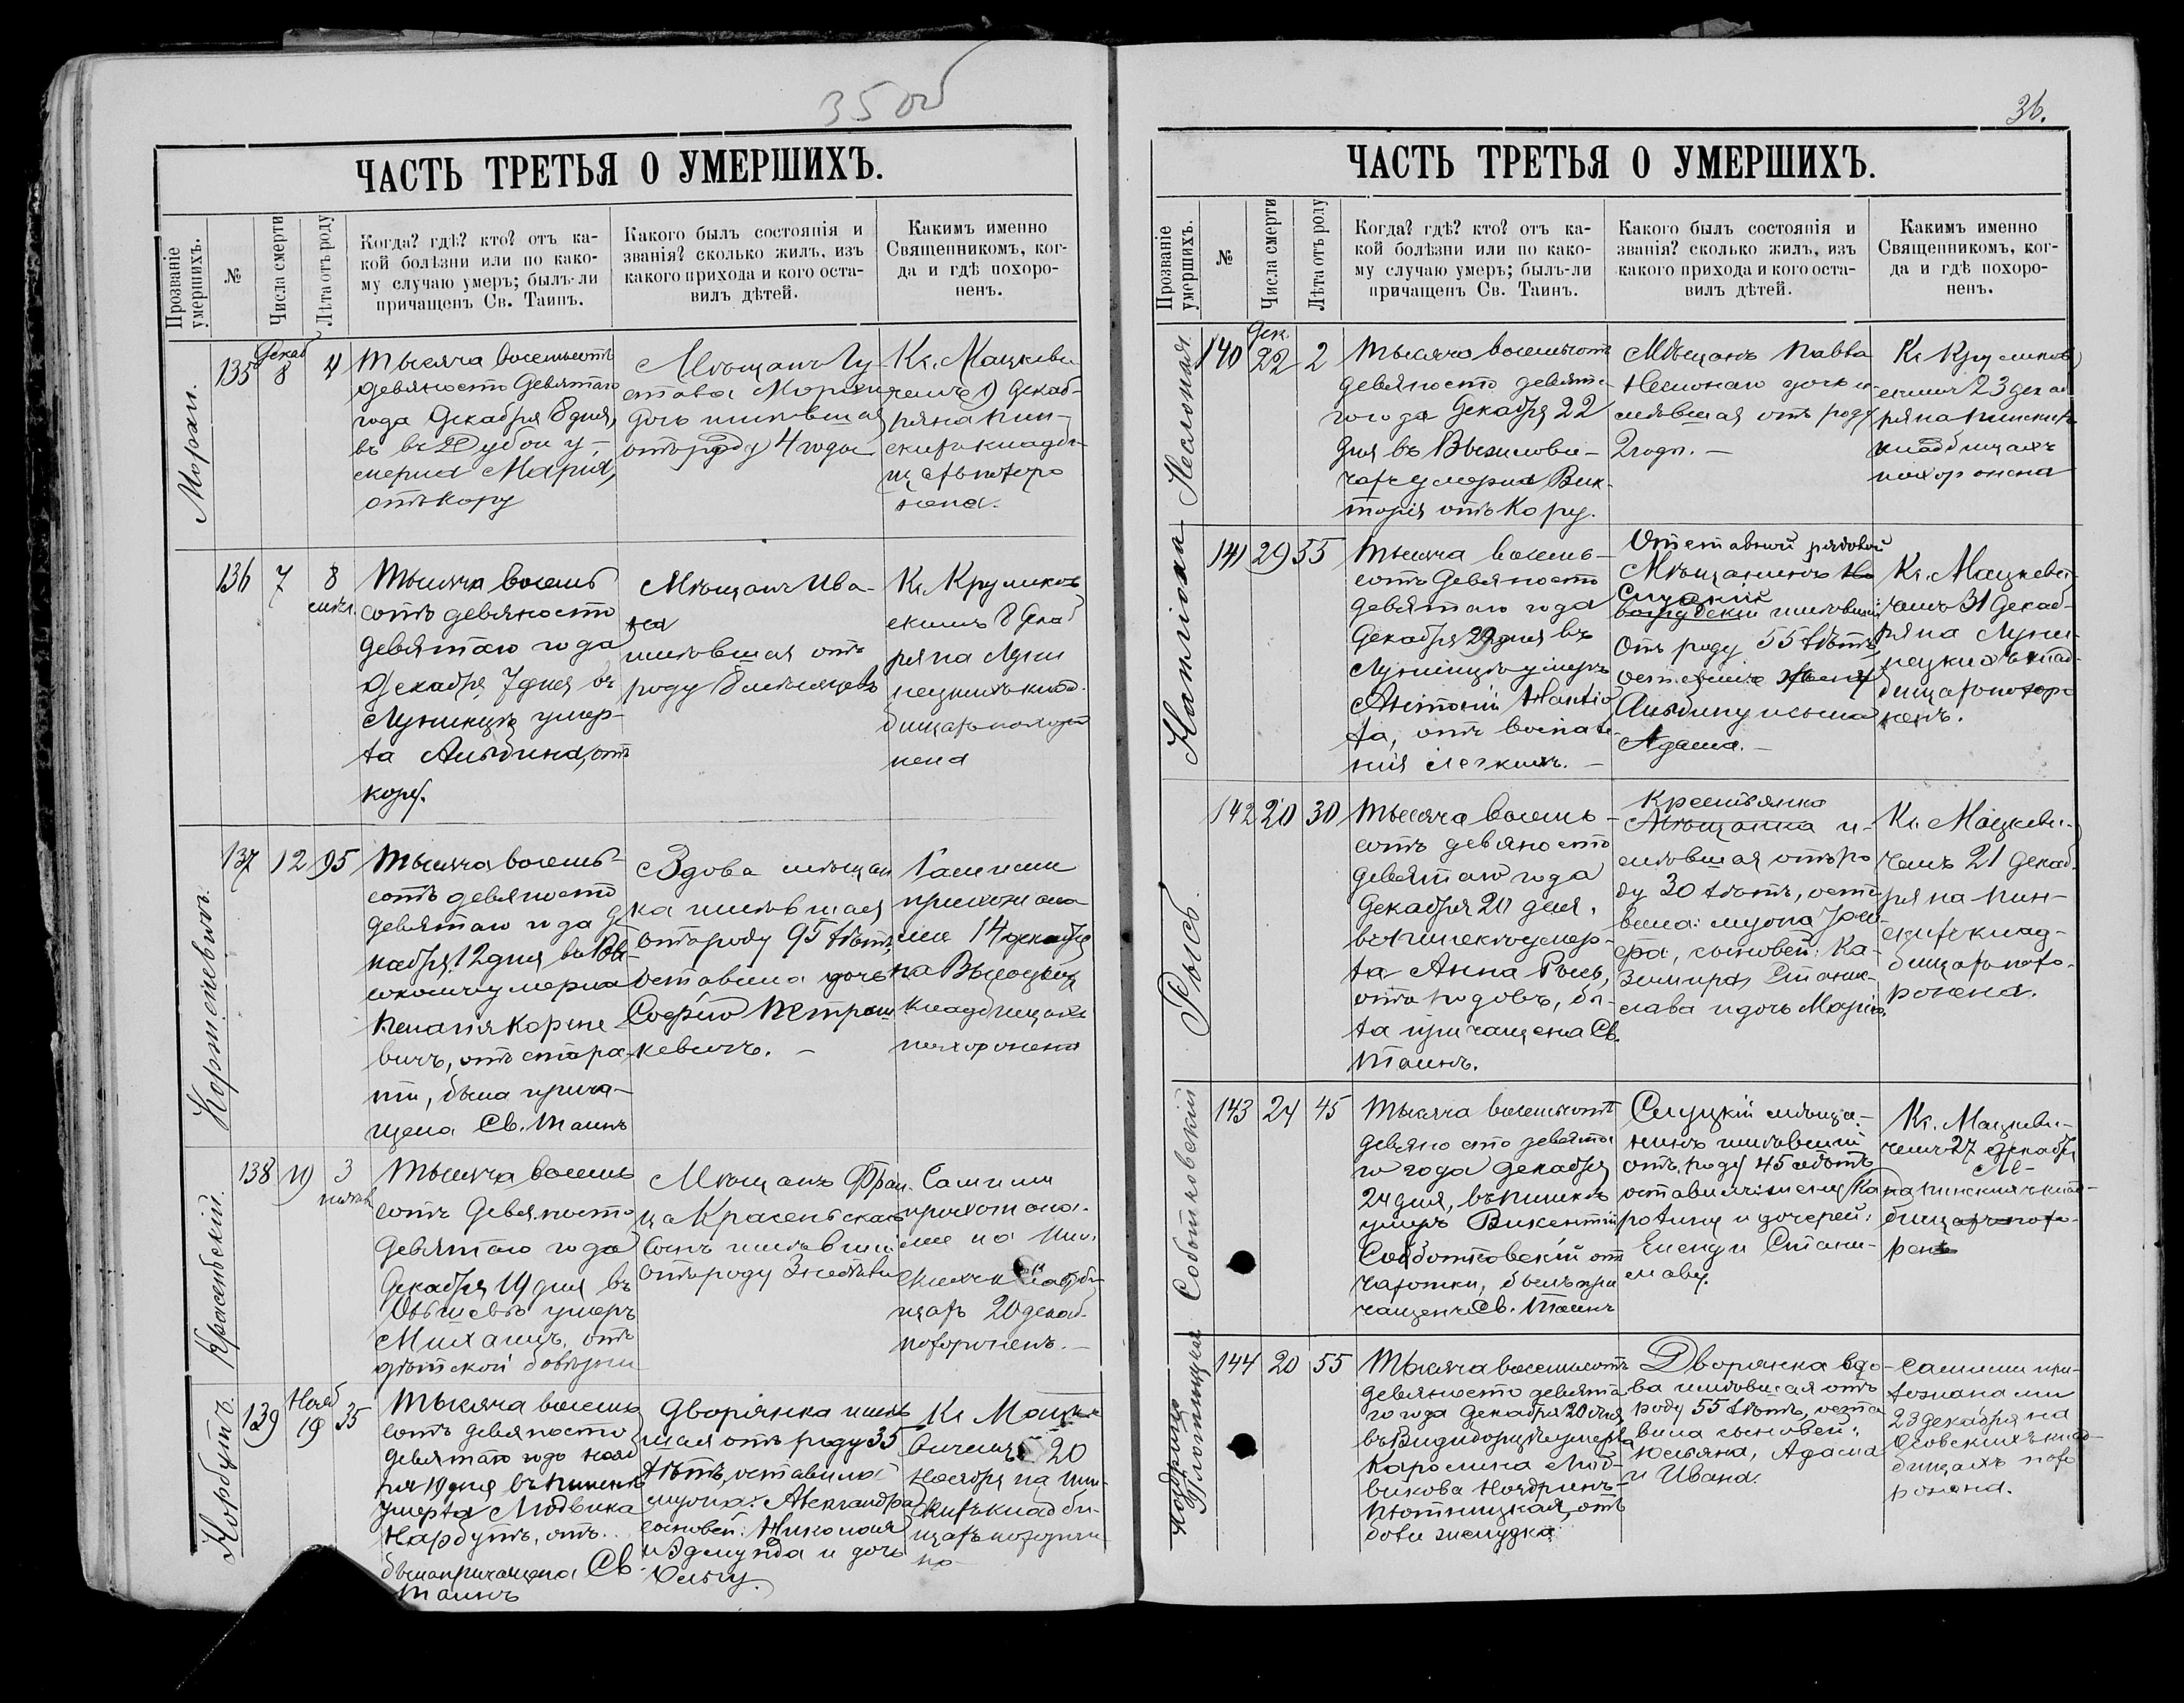 35 об
ЧАСТЬ ТРЕТЬЯ О УМЕРШИХЪ.
Прозваніе умершихъ.
№
Числа смерти
Лѣта отъ роду
Когда? гдѣ? кто? отъ ка-
кой болѣзни или по како-
му случаю умеръ; былъ-ли
причащенъ Св. Таинъ.
Какого былъ состоянія и
званія? сколько жилъ, изъ
какого прихода и кого оста-
вилъ дѣтей.
Какимъ именно
Священникомъ, ког-
да и гдѣ похоро-
ненъ.
Моран.
135
Декаб
8
4
Тысяча восемьсотъ
девяносто девятаго
года Декабря 8 дня,
въ Дубои у-
мерла Марія,
отъ кору
Мѣщанъ Гу-
става Моран
дочь жившая
отъ роду 4 года
Кс. Мацкеви-
чемъ 9 декаб-
ря на Пин-
скихъ кладби-
щахъ похоро
нена.
136
7
8
мѣс.
Тысяча восемь
сотъ девяносто
девятаго года
Декабря 7 дня въ
Лунинцѣ умер-
ла Альбина, отъ
кору.
Мѣщанъ Ива-
на
жившая отъ
роду 8 мѣсяцевъ
Кс. Круликов
скимъ 8 декаб
ря на Луни
нецкихъ клад-
бищахъ похоро
нена
Кортелевичъ.
137
12
95
Тысяча восемь-
сотъ девяносто
девятаго года Де-
кабря 12 дня въ Вы-
сокомъ умерла
Пелагія Корте
вичъ, отъ старо-
сти, была прича-
щена Св. Таинъ
Вдова мѣщан
ка жившая
отъ роду 95 лѣтъ,
оставила дочь
Софію Петраш
кевичъ. -
Самими
прихожана
ми 14 декабря
на Высоцкихъ
кладбищахъ
похоронена
Красеньскій.
138
19
3
Тысяча восемь
сотъ девяносто
девятаго года
Декабря 19 дня въ
умеръ
Михаилъ, отъ
дѣтской болѣзни
Мѣщанъ Фран
ца Красеньскаго
сынъ жившій
отъ роду 3
Самими
прихожана-
ми на Пин-
скихъ кладби-
щахъ 20 декаб.
похороненъ. -
Нарбутъ.
139
Нояб
19
35
Тысяча восемь
сотъ девяносто
девятаго года нояб
ря 19 дня въ Пинскѣ
умерла Людвика
Нарбутъ, отъ..
была причащена Св.
Таинъ
Дворянка жив
шая отъ роду 35
лѣтъ, оставила
мужа: Александра
сыновей: Николая
и Эдмунда и дочь
Ольгу.
Кс Мацке
вичемъ 20
Ноября на Пин-
скихъ кладби-
щахъ похороне
на
36.
ЧАСТЬ ТРЕТЬЯ О УМЕРШИХЪ.
Прозваніе умершихъ.
№
Числа смерти
Лѣта отъ роду
Когда? гдѣ? кто? отъ ка-
кой болѣзни или по како-
му случаю умеръ; былъ-ли
причащенъ Св. Таинъ.
Какого былъ состоянія и
званія? сколько жилъ, изъ
какого прихода и кого оста-
вилъ дѣтей.
Какимъ именно
Священникомъ, ког-
да и гдѣ похоро-
ненъ.
140
Дек
22
2
Тысяча восемьсотъ
девяносто девята-
го года Декабря 22
дня въ
умерла Вик-
торія отъ кору.
Мѣщанъ Павла
дочь жи-
вшая отъ роду
2 года. -
Кс Круликов
скимъ 23 декаб
ря на Пинскихъ
кладбищахъ
похоронена
141
29
55
Тысяча восемь-
сотъ девяносто
девятаго года
Декабря 29 дня въ
Лунинцѣ умеръ
Антоній
отъ воспале-
нія легкихъ. -
Отставной рядовой
Мѣщанинъ
Слуцкій
жившій
отъ роду 55 лѣтъ
оставилъ жену
Альбину и сына
Адама. -
Кс. Мацкеви-
чемъ 31 Декаб-
ря на Луни-
нецкихъ клад-
бищахъ похоро
ненъ.
Рысь.
142
20
30
Тысяча восемь-
сотъ девяносто
девятаго года
Декабря 20 дня,
въ Пинскѣ умер-
ла Анна Рысь,
отъ родовъ, бы-
ла причащена Св.
Таинъ.
Крестьянка
Мѣщанка жи-
вшая отъ ро
ду 30 лѣтъ, оста
вила: мужа Іоси-
фа, сыновей: Ка-
зимира, Станис-
лава и дочь Марію.
Кс. Мацкеви-
чемъ 21 декаб-
ря на Пин-
скихъ клад-
бищахъ похо-
ронена.
Соботковскій
143
24
45
Тысяча восемьсотъ
девяносто девята
го года Декабря
24 дня, въ Пинскѣ
умеръ Викентій
Соботковскій отъ
чахотки, былъ при
чащенъ Св. Таинъ
Слуцкій мѣща-
нинъ жившій
отъ роду 45 лѣтъ
оставилъ жену Ка
ролину и дочерей:
Елену и Стани-
славу.
Кс. Мацкеви-
чемъ 27 декабря
на Пинскихъ клад-
бищахъ похо-
ренъ
144
20
55
Тысяча восемьсотъ
девяносто девята
го года Декабря 20 дня
въ умерла
Каролина Люд-
викова
отъ
боли желудка.
Дворянка вдо-
ва жившая отъ
роду 55 лѣтъ, оста
вила сыновей:
Юльяна, Адама
и Ивана.
Самими при-
хожанами
23 декабря на
кклад-
бищахъ похо
ронена.